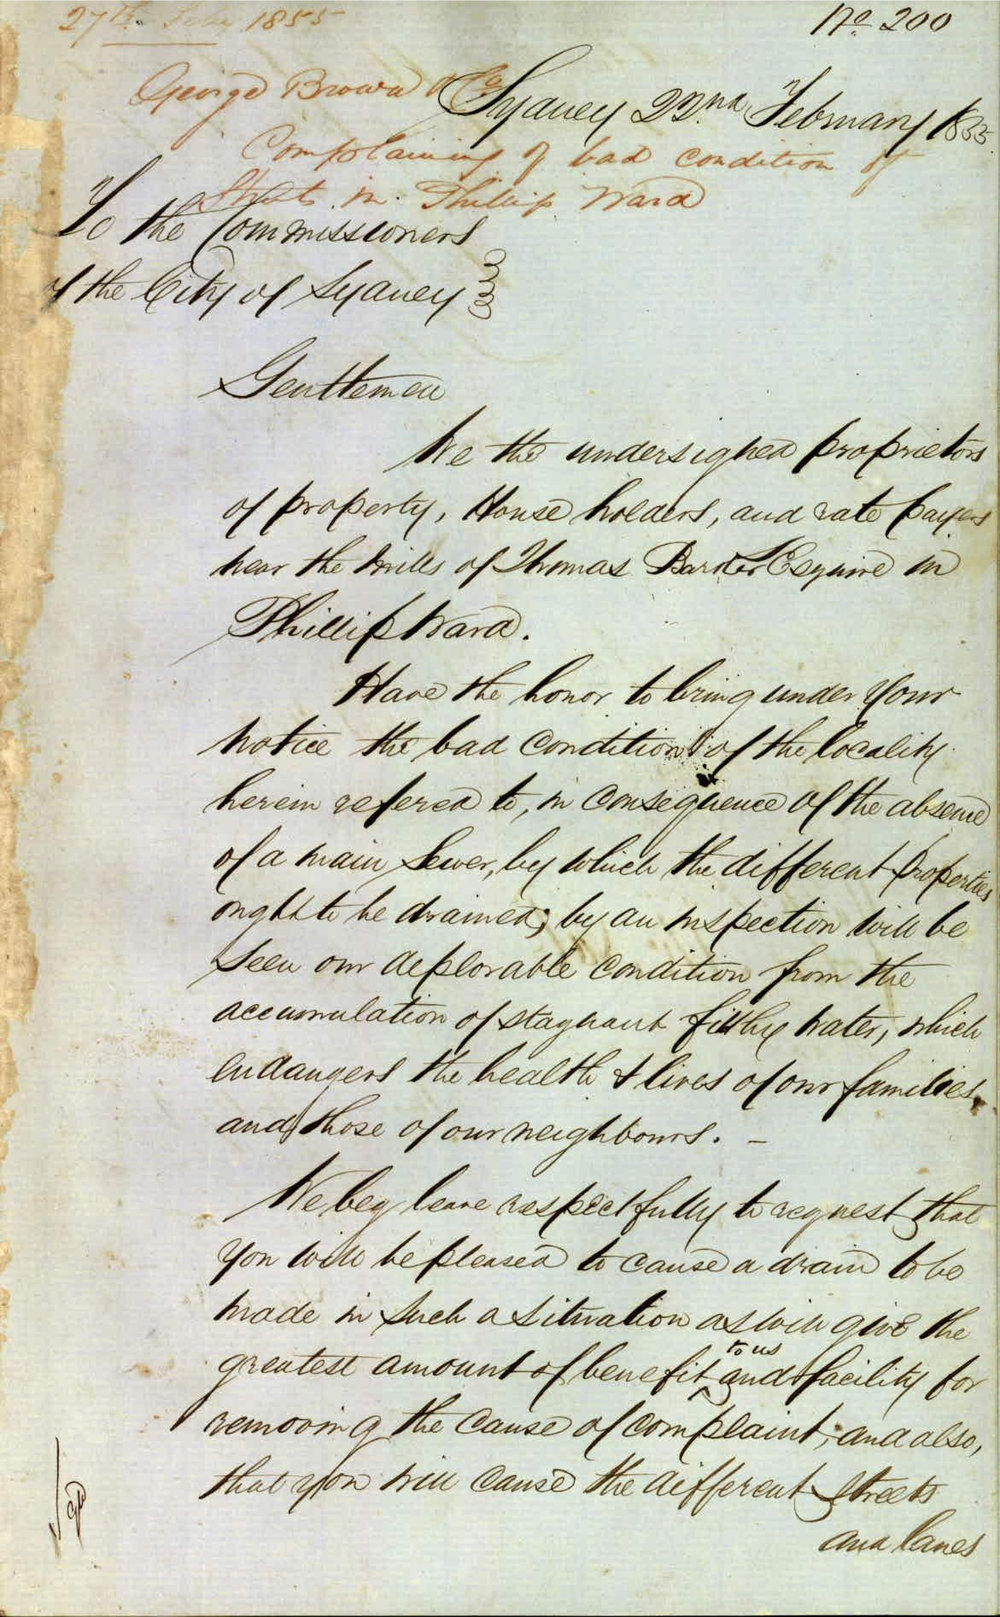 27th Feby 1855
No 200
George Brown & Co
Sydney 22nd February 1855
Complaining of bad condition of
Streets in Phillip Ward
To the Commissioners
of the City of Sydney
Gentlemen
We the undersigned proprietors
of property, House holders, and rate payers
near the Mills of Thomas Barker Esquire in
Phillip Ward.
Have the honor to bring under Your
notice the bad condition of the locality
herein refered to, in consequence of the absence
of a main Sewer, by which the different properties
ought to be drained; by an inspection will be
seen our deplorable condition from the
accumulation of stagnant filthy water, which
endangers the health & lives of our families,
and those of our neighbours. –
We beg leave respectfully to request that
you will be pleased to cause a drain to be
made in such a situation as will give the
greatest amount of benefit to us and facility for
removing the cause of complaint; and also,
that you will cause the different streets
and lanes